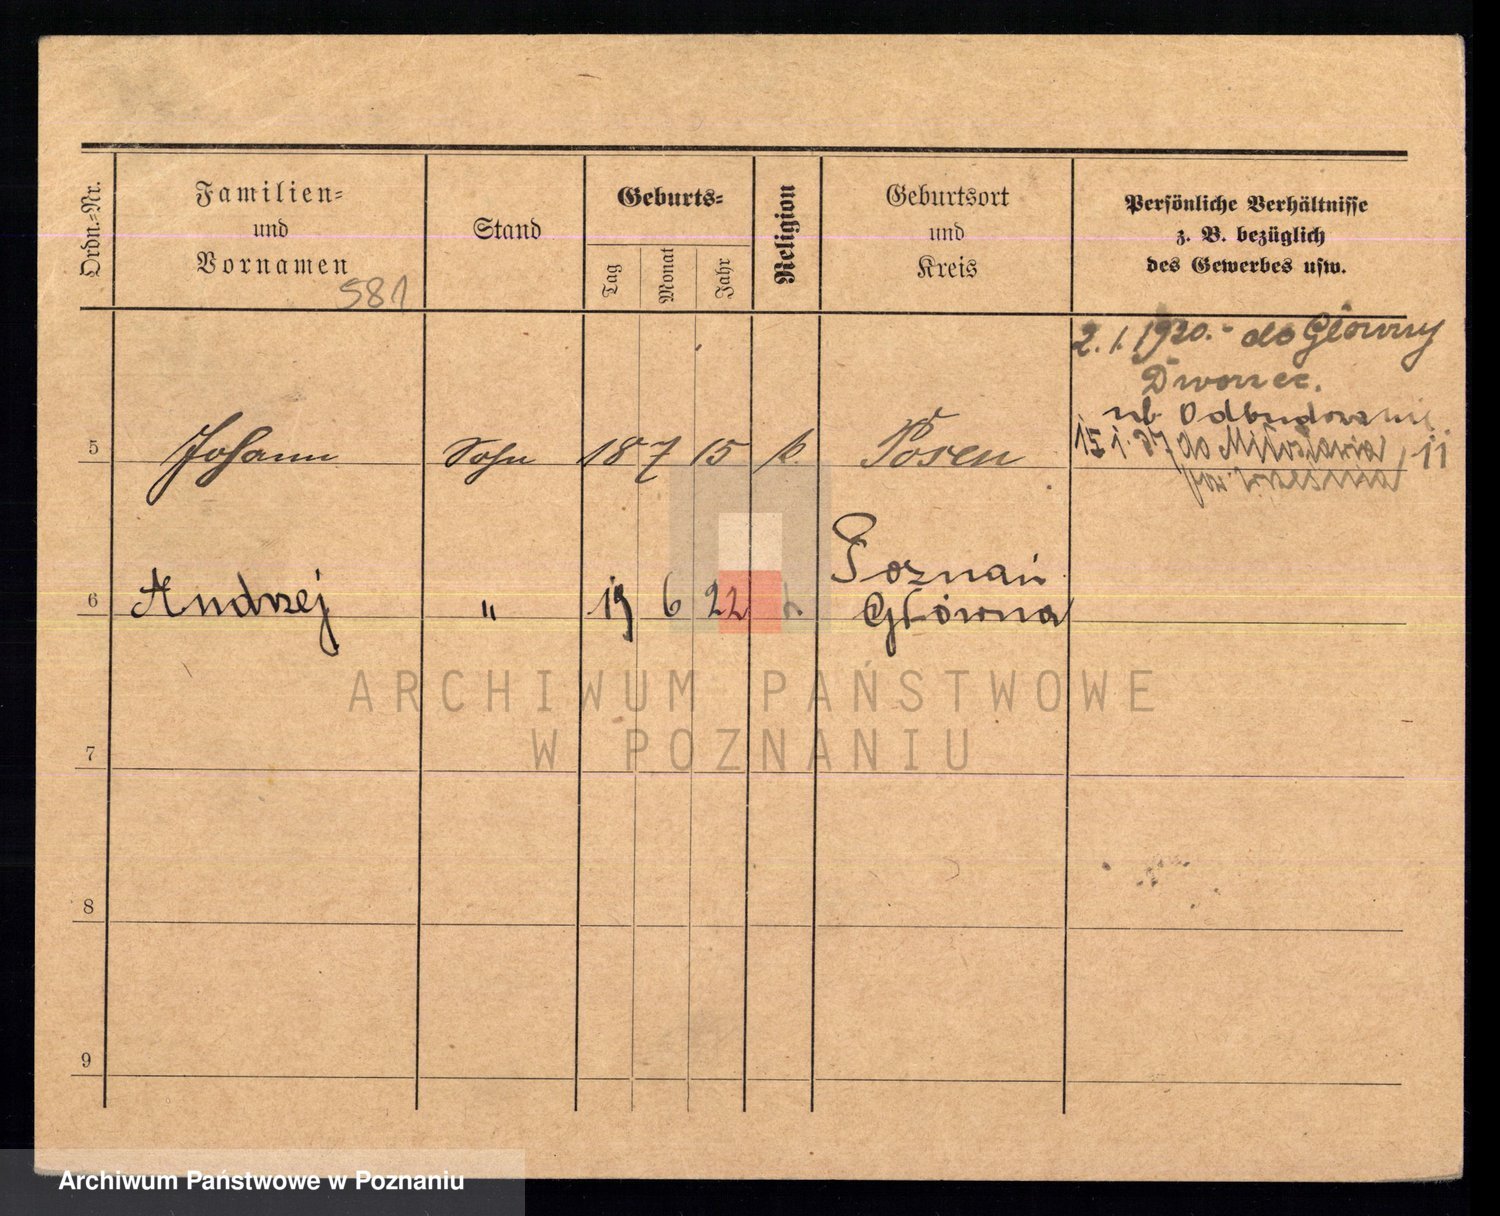 Ordn.-Nr.
Familien-
und
Vornamen
581
Stand
Geburts-
Tag
Monat
Jahr
Religion
Geburtsort
und
Kreis
Persönliche Verhältnisse
z. B. bezüglich
des Gewerbes usw.
2.1.1920.- do Główny
Dworzec.
5 Johann Sohn 18 7 15 k. Posen
15 1. 37 do Miłosławia 11
6 Andrzej " 19 6 22 k.
Poznań
Główna
ARCHIWUM PAŃSTWOWE
W POZNANIU
7
8
9
Archiwum Państwowe w Poznaniu